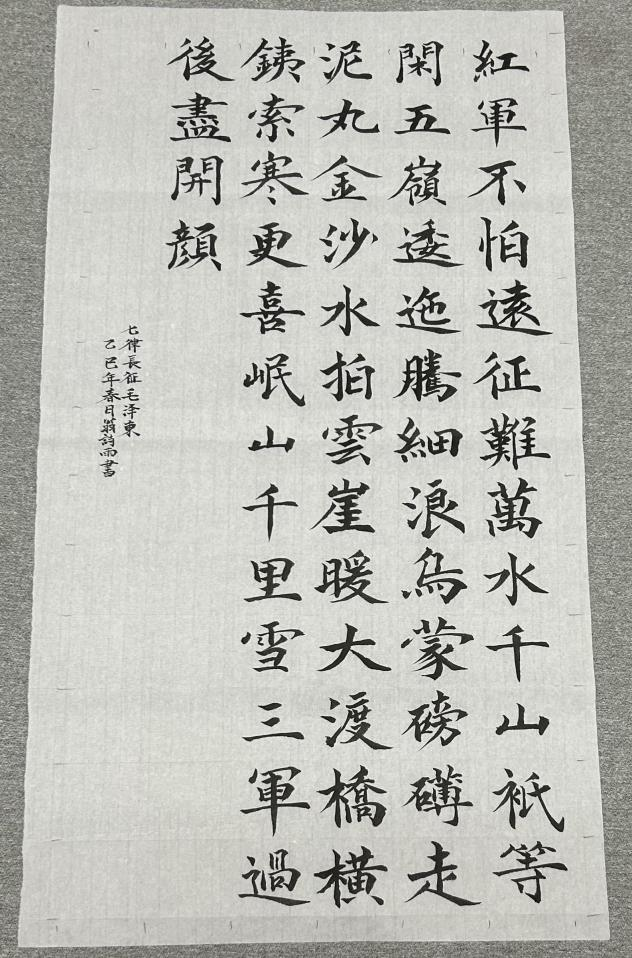 紅軍不怕遠征難萬水千山祇等
閑五嶺逶迤騰細浪烏蒙磅礴走
泥丸金沙水拍雲崖暖大渡橋橫
銕索寒更喜岷山千里雪三軍過
後盡開顏
七律長征毛泽東
乙巳年春日翁詩雨書